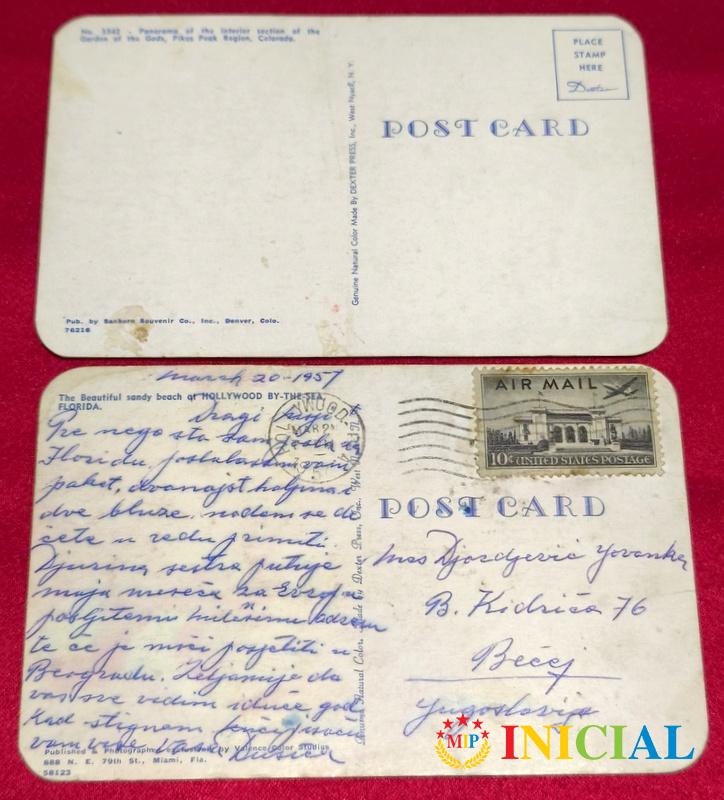 No. 3342 - Panorama of the interior section of the
Garden of the Gods, Pikes Peak Region, Colorado.
PLACE
STAMP
HERE
Dexter
POST CARD
Genuine Natural Color Made By DEXTER PRESS, Inc., West Nyack, N. Y.
Pub. by Sanborn Souvenir Co., Inc., Denver, Colo.
76216
March 20-1957
The Beautiful sandy beach at HOLLYWOOD BY-THE-SEA,
FLORIDA.
Dragi moji
Pre nego sta sam pošla u
Floridu, poslala sam vam
paket, dvanajst haljina i
dve bluze. nadam se da
ćete u redu primiti.
Djurina sestra putuje
maja meseca za Evropu
te će je moći posjetiti u
Beogradu. Željami je da
vas sve vidim iduće god
Kad stignem
vam Dušica
Published & Photographed by Valence Color Studios
688 N. E. 79th St., Miami, Fla.
58123
Genuine Natural Color Made by Dexter Press, Inc., West
AIR MAIL
10¢ UNITED STATES POSTAGE
POST CARD
Mrs Djordjević Yovanka
B. Kidriča 76
Bečej
Yugoslavija
MIP
INICIAL